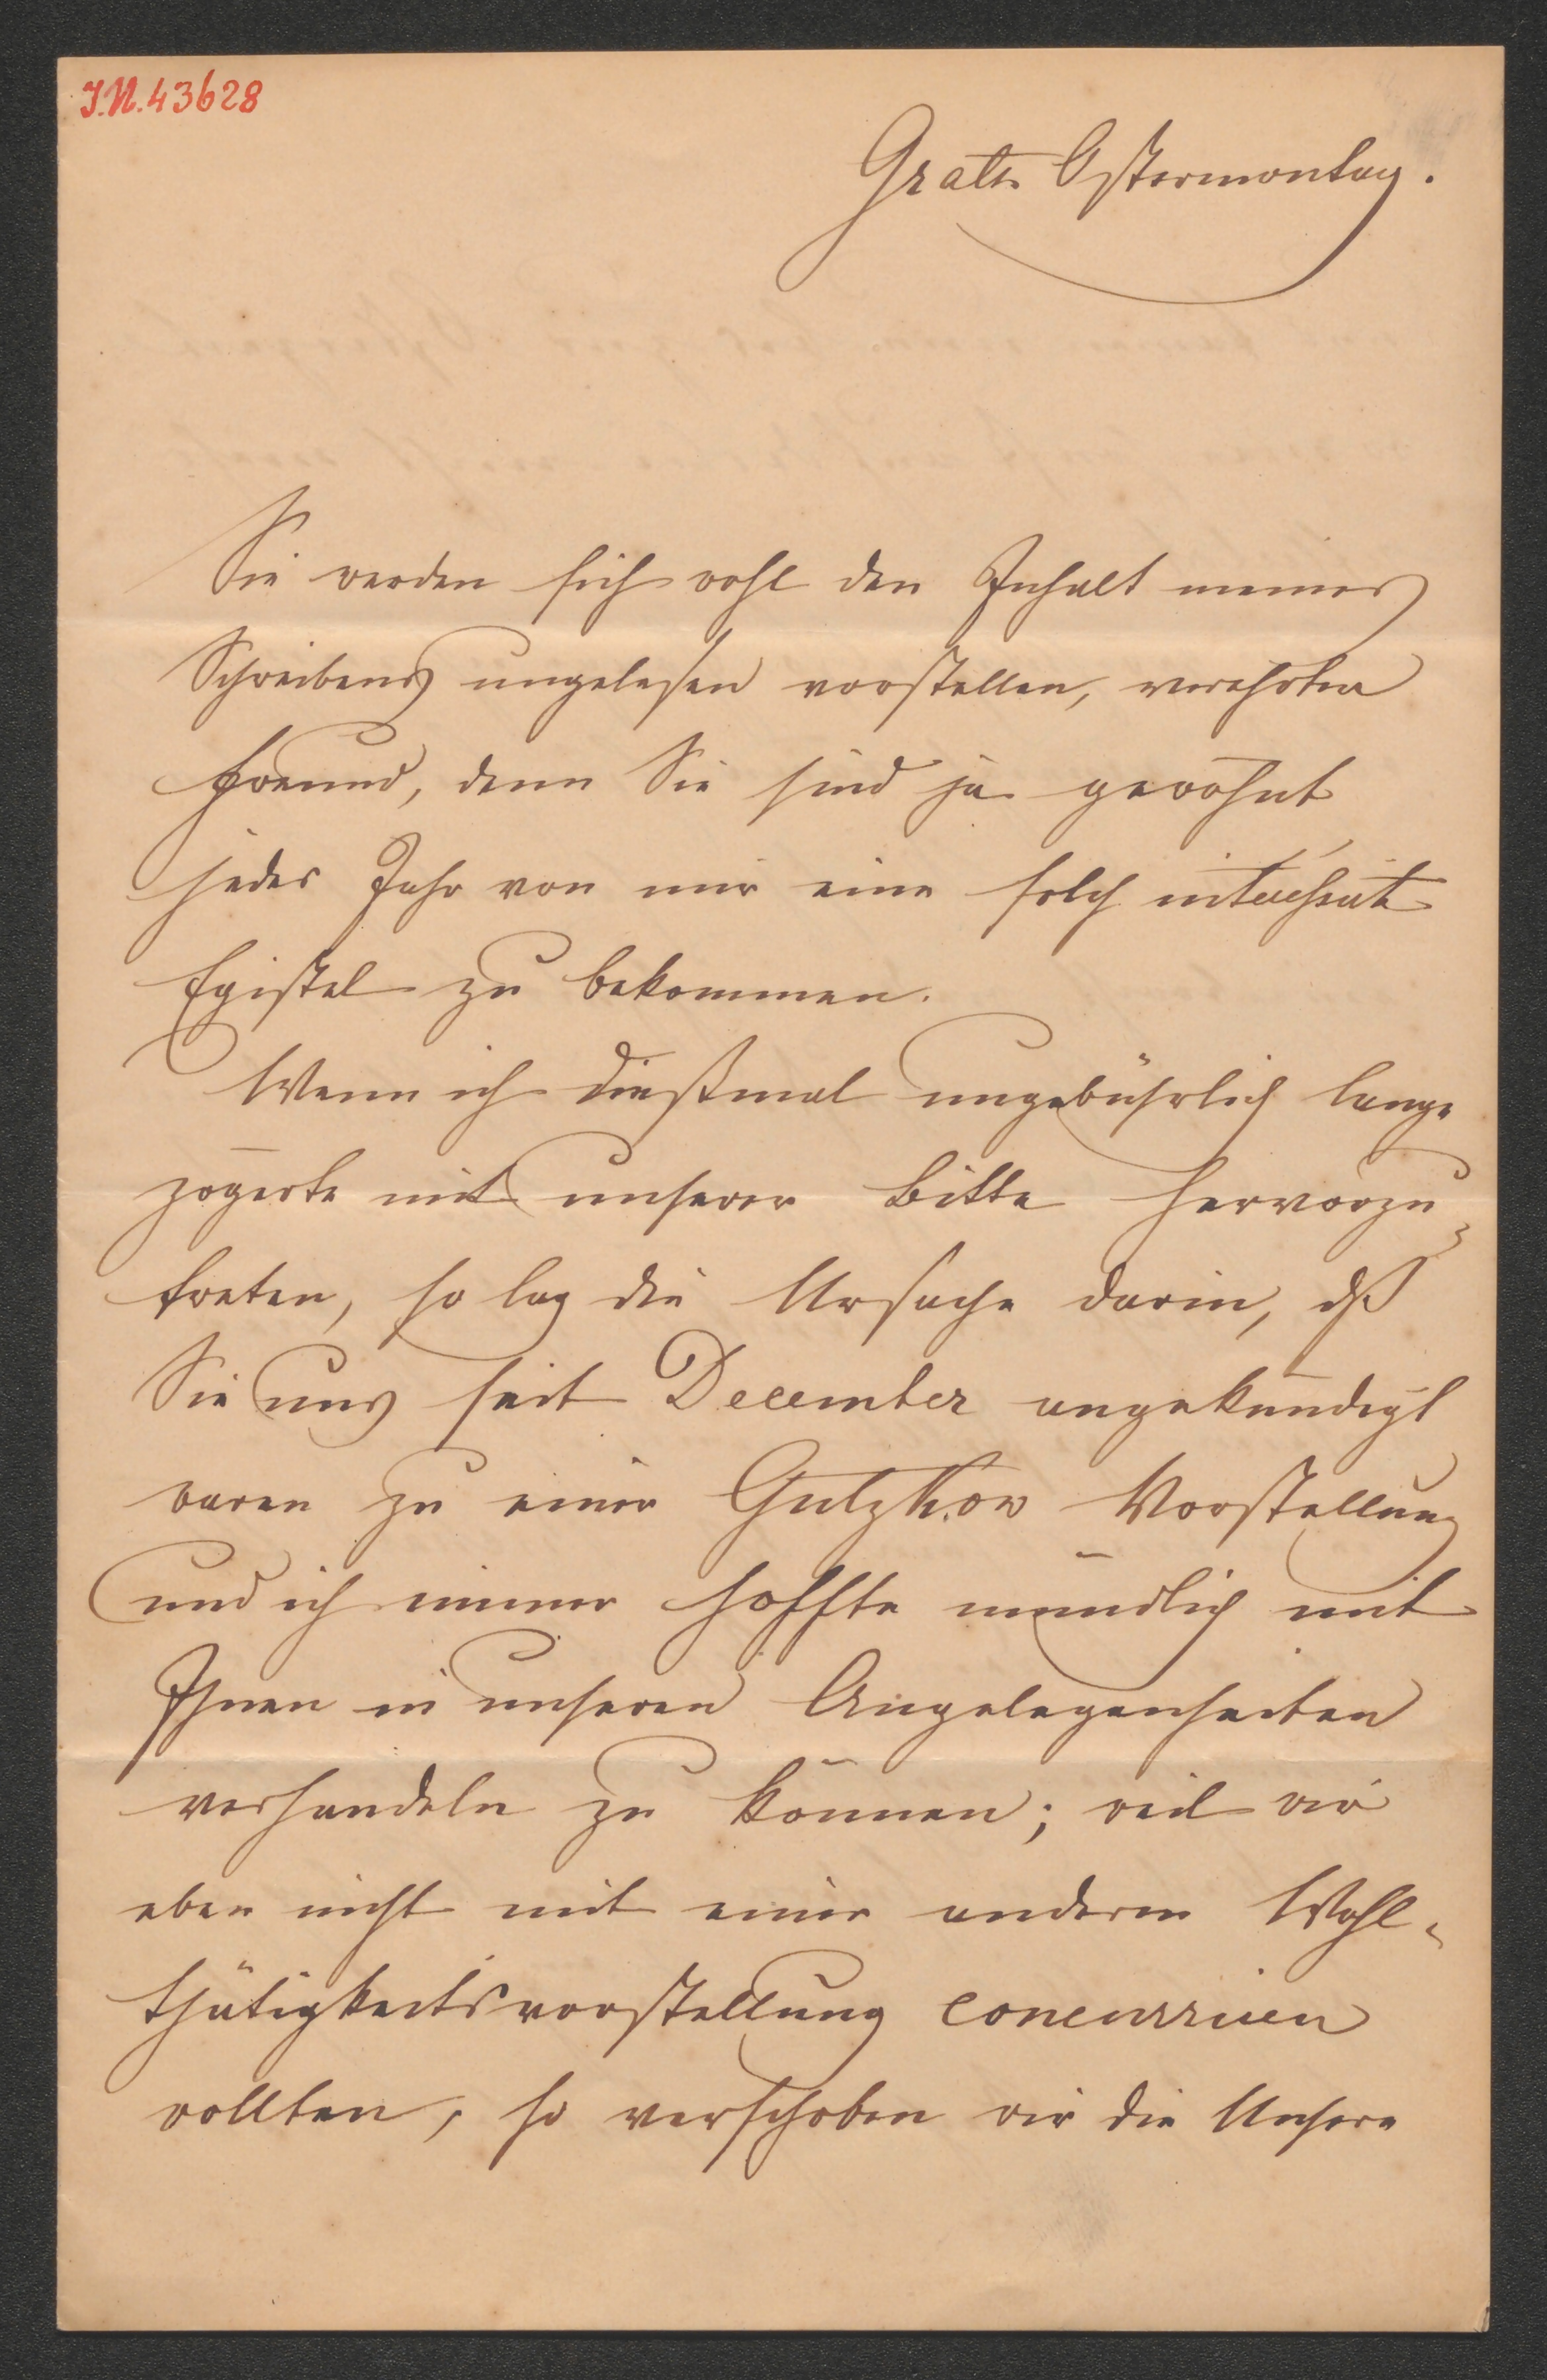 I.N. 43628
Gratz Ostermontag.
Sie werden sich wohl den Inhalt meines
Schreibens ungelesen vorstellen, verehrter
Freund, denn Sie sind ja gewöhnt
jedes Jahr von mir eine solch
Epistel zu bekommen.
Wenn ich dießmal ungebührlich lange
zögerte mit unserer Bitte hervorzu-
treten, so lag die Ursache darin, dß
Sie uns seit December angekündigt
waren zu einer Gutzkow Vorstellung
und ich immer hoffte mündlich mit
Ihnen in unseren Angelegenheiten
verhandeln zu können; weil wir
eben nicht mit einer anderen Wohl-
thätigkeitsvorstellung concurriren
wollten, so verschoben wir die Unsere